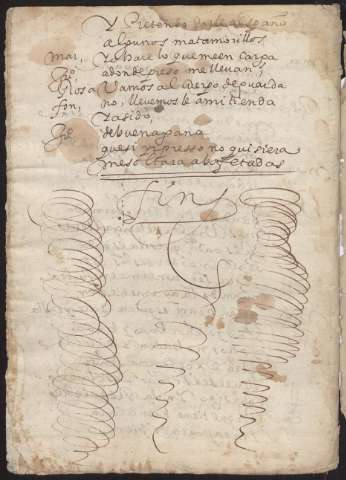 Y Pretendo
algunos matamorillos
Mar, Yo hare lo que me en carga
Jo, adonde preso me lleuan,
Glosa Vamos al cuerpo de guarda
fon, no, lleuemos le a mi tienda
Yasido,
Jo, de buena gana
que si n presso no quisiera
me soltara a bofetadas
fins